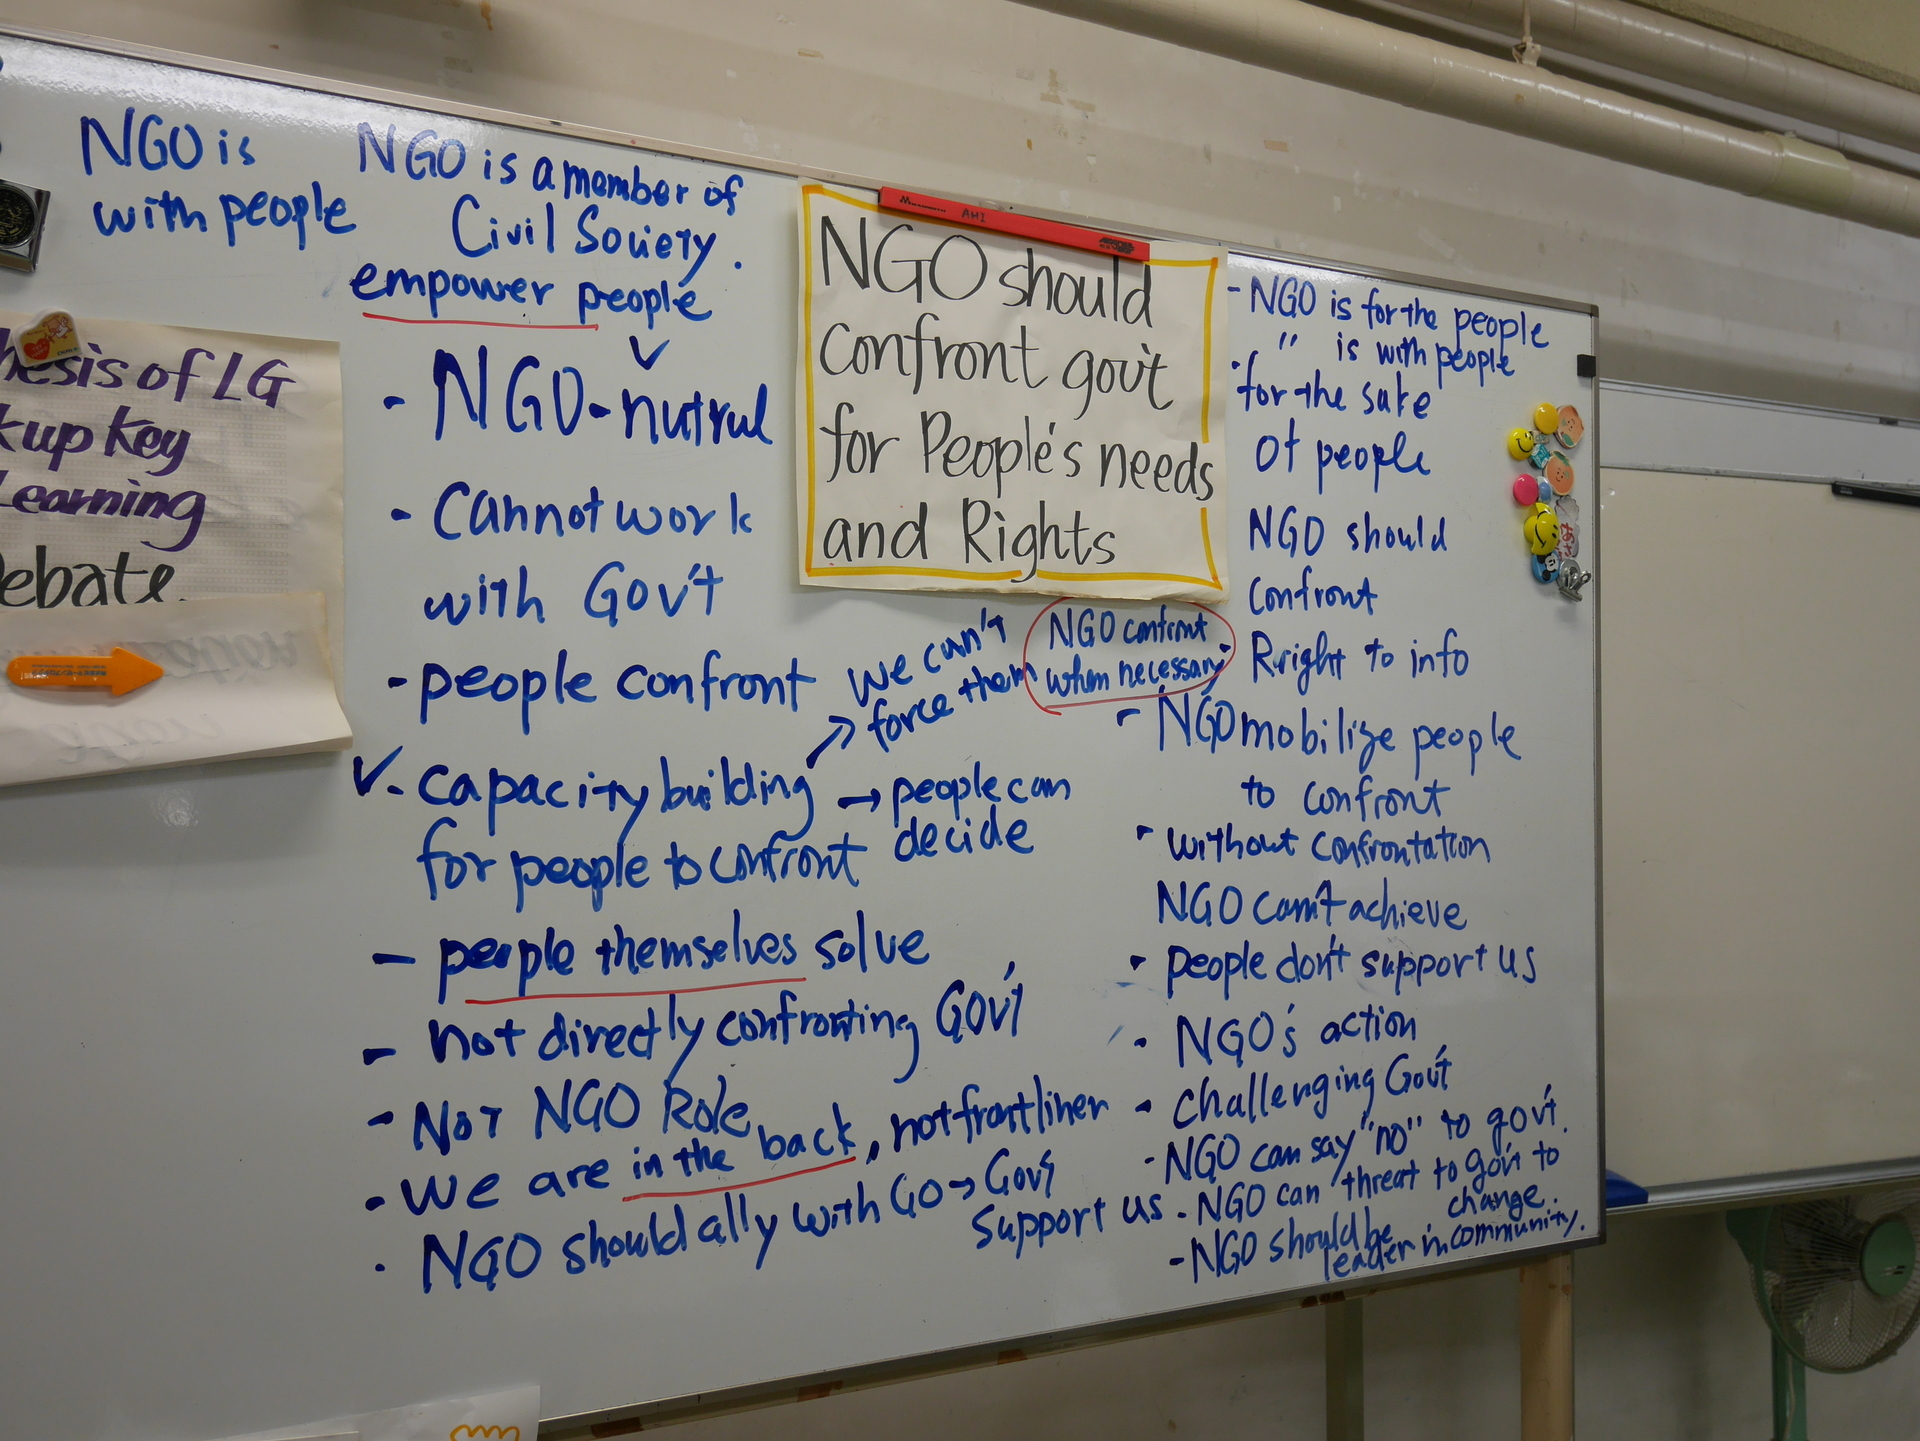 NGO is
with people
NGO is a member of
Civil Society.
empower people
- NGO-nutrul
- Cannot work
with Gov't
- people confront
we can't
force them
- capacity building → people can
decide
for people to confront
- people themselves solve
- not directly confronting Gov't
- NOT NGO Role
- We are in the back, not frontliner
- NGO should ally with GO → Gov't
support us
hesis of LG
kup Key
Learning
ebate.
AHI
NGO should
confront gov't
for People's needs
and Rights
NGO confront
when necessary
- NGO is for the people
" is with people
- for the sake
of people
NGO should
confront
Rright to info
- NGO mobilize people
to confront
- without confrontation
NGO can't achieve
- people don't support us
- NGO's action
- challenging Gov't
- NGO can say "no" to gov't.
- NGO can threat to gov't to
change.
- NGO should be
leader in community.